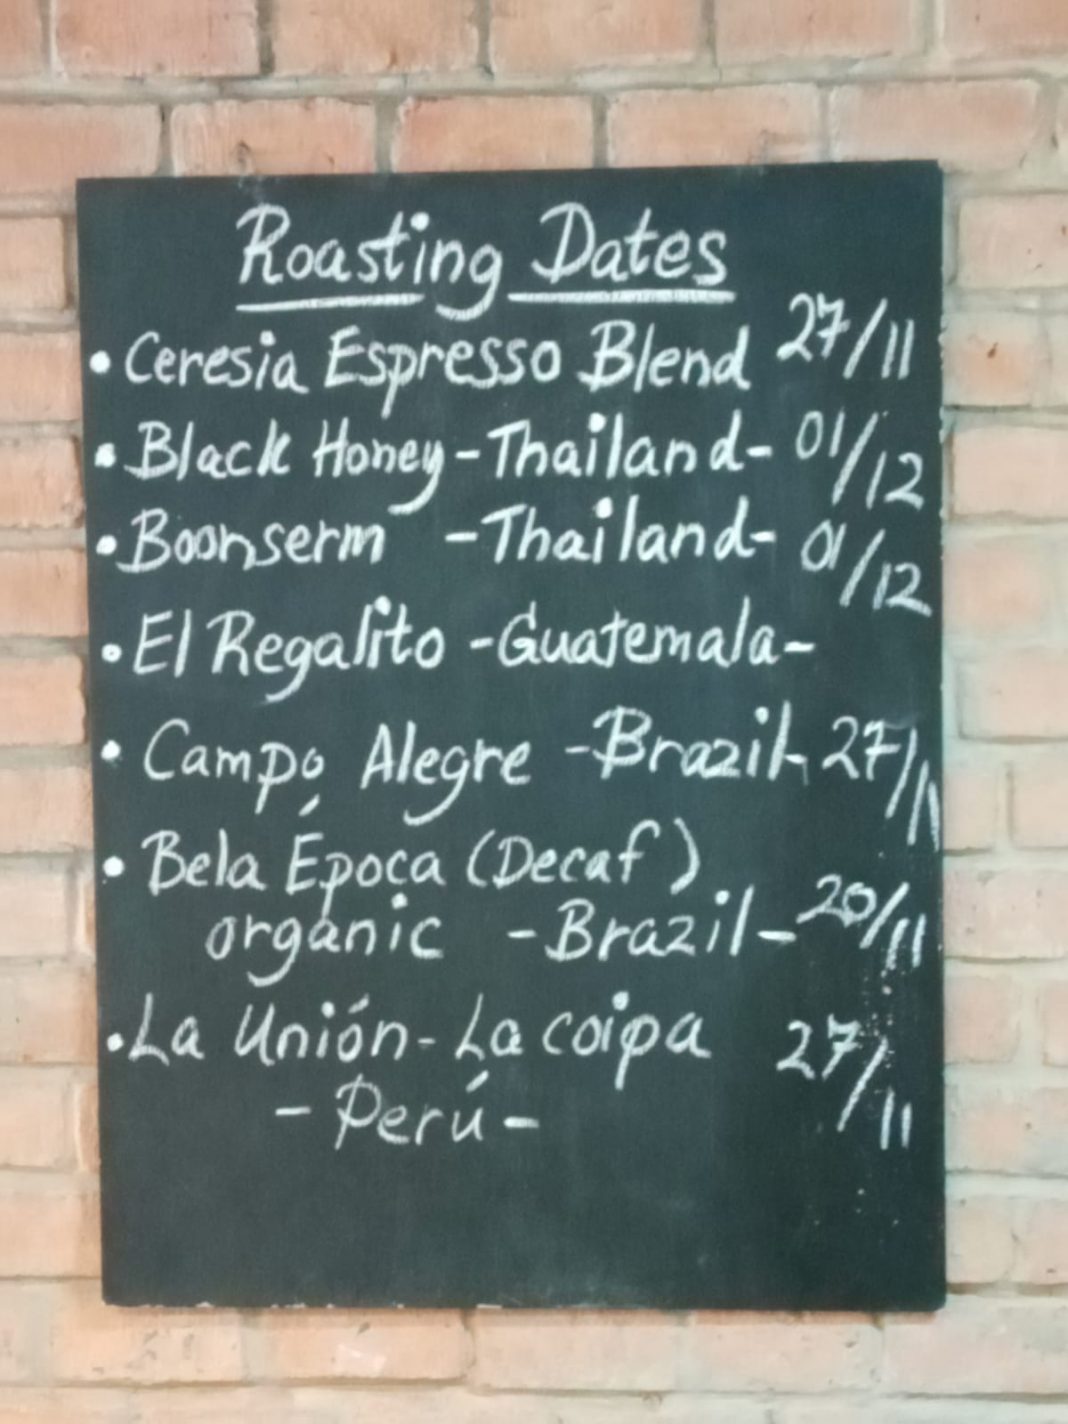 Roasting Dates
• Ceresia Espresso Blend 27/11
• Black Honey - Thailand - 01/12
• Boonserm - Thailand - 01/12
• El Regalito - Guatemala -
• Campo Alegre - Brazil - 27/11
• Bela Época (Decaf)
organic - Brazil - 20/11
• La Unión - La coipa 27/11
- Perú -